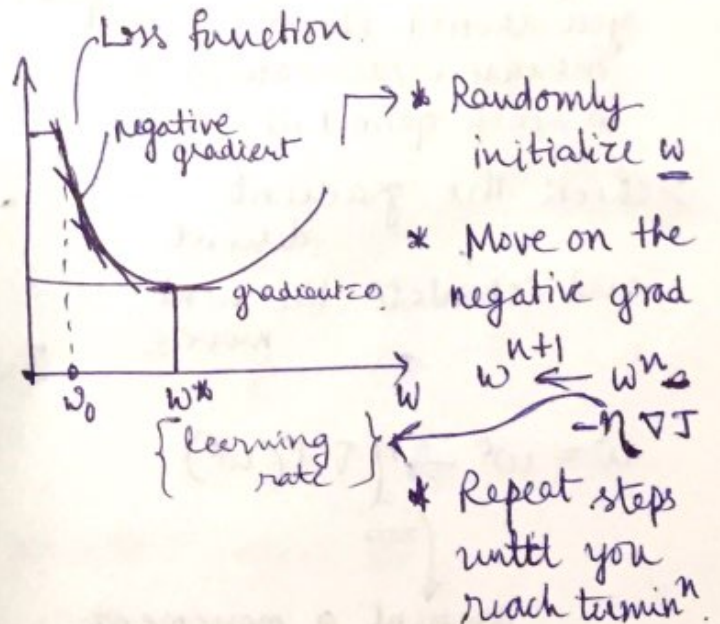 Loss function
negative
gradient
gradient=0
w₀
w*
w
{learning
rate}
* Randomly
initialize w
* Move on the
negative grad
wⁿ⁺¹ ← wⁿ
-η ∇J
* Repeat steps
until you
reach terminⁿ.